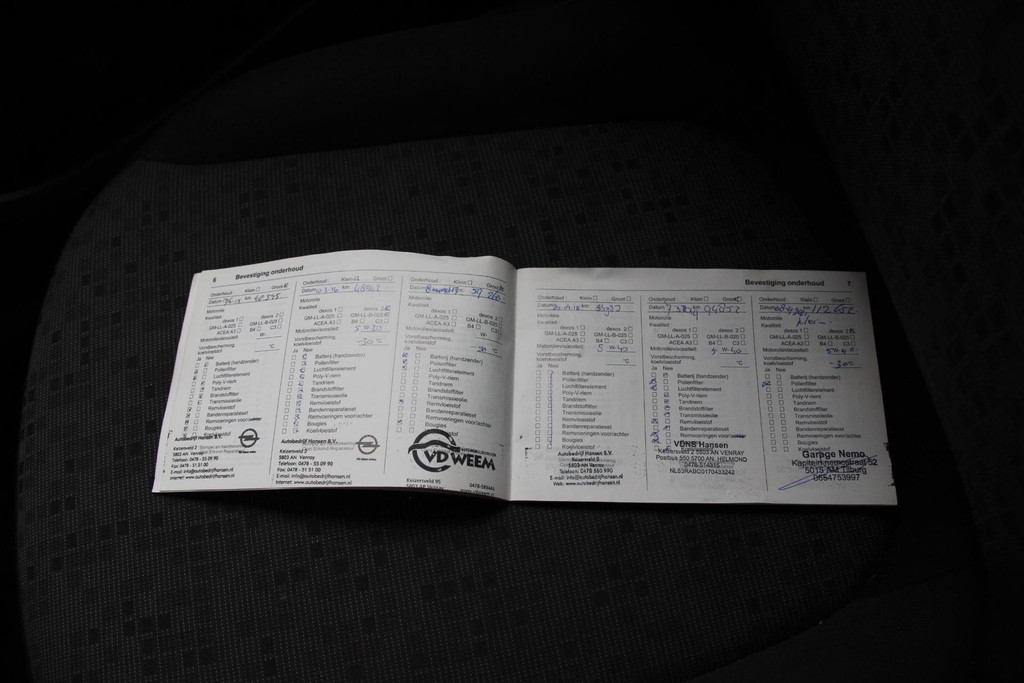 6 Bevestiging onderhoud
Onderhoud: Klein Groot
Datum: km
Motorolie
Kwaliteit:
dexos 1 dexos 2
GM-LL-A-025 GM-LL-B-025
ACEA A3 B4 C3
Motorolieviscositeit: W-
Vorstbescherming, koelvloeistof °C
Ja Nee
Batterij (handzender)
Pollenfilter
Luchtfilterelement
Poly-V-riem
Tandriem
Brandstoffilter
Transmissieolie
Remvloeistof
Bandenreparatieset
Remvoeringen voor/achter
Autobedrijf Hansen B.V.
Keizersveld 2
5803 AN Venray
Telefoon: 0478 - 55 09 90
Fax: 0478 - 51 51 00
E-mail: info@autobedrijfhansen.nl
Internet: www.autobedrijfhansen.nl
Onderhoud: Klein Groot
Datum: km 48962
Motorolie
Kwaliteit:
dexos 1 dexos 2
GM-LL-A-025 GM-LL-B-025
ACEA A3 B4 C3
Motorolieviscositeit: 5 W-30
Vorstbescherming, koelvloeistof -30 °C
Ja Nee
Batterij (handzender)
Pollenfilter
Luchtfilterelement
Poly-V-riem
Tandriem
Brandstoffilter
Transmissieolie
Remvloeistof
Bandenreparatieset
Remvoeringen voor/achter
Bougies
Koelvloeistof
Autobedrijf Hansen B.V.
Keizersveld 2
5803 AN Venray
Telefoon: 0478 - 55 09 90
Fax: 0478 - 51 51 00
E-mail: info@autobedrijfhansen.nl
Internet: www.autobedrijfhansen.nl
Onderhoud: Klein Groot
Datum: km
Motorolie
Kwaliteit:
dexos 1 dexos 2
GM-LL-A-025 GM-LL-B-025
ACEA A3 B4 C3
Motorolieviscositeit: W-
Vorstbescherming, koelvloeistof °C
Ja Nee
Batterij (handzender)
Pollenfilter
Luchtfilterelement
Poly-V-riem
Tandriem
Brandstoffilter
Transmissieolie
Remvloeistof
Bandenreparatieset
Remvoeringen voor/achter
Bougies
Koelvloeistof
VD WEEM
Keizersveld 95
Bevestiging onderhoud 7
Onderhoud: Klein Groot
Datum: km
Motorolie
Kwaliteit:
dexos 1 dexos 2
GM-LL-A-025 GM-LL-B-025
ACEA A3 B4 C3
Motorolieviscositeit: 5 W-40
Vorstbescherming, koelvloeistof °C
Ja Nee
Batterij (handzender)
Pollenfilter
Luchtfilterelement
Poly-V-riem
Tandriem
Brandstoffilter
Transmissieolie
Remvloeistof
Bandenreparatieset
Remvoeringen voor/achter
Bougies
Koelvloeistof
Autobedrijf Hansen B.V.
Keizersveld 2
5803 AN Venray
Telefoon: 0478 550 990
E-mail: info@autobedrijfhansen.nl
Web: www.autobedrijfhansen.nl
Onderhoud: Klein Groot
Datum: km
Motorolie
Kwaliteit:
dexos 1 dexos 2
GM-LL-A-025 GM-LL-B-025
ACEA A3 B4 C3
Motorolieviscositeit: W-40
Vorstbescherming, koelvloeistof °C
Ja Nee
Batterij (handzender)
Pollenfilter
Luchtfilterelement
Poly-V-riem
Tandriem
Brandstoffilter
Transmissieolie
Remvloeistof
Bandenreparatieset
Remvoeringen voor/achter
VDNS Hansen
Keizersveld 2 5803 AN VENRAY
Postbus 550 5700 AN HELMOND
NL53RABO0170433242
Onderhoud: Klein Groot
Datum: km 112652
Motorolie
Kwaliteit:
dexos 1 dexos 2
GM-LL-A-025 GM-LL-B-025
ACEA A3 B4 C3
Motorolieviscositeit:
Vorstbescherming, koelvloeistof -30 °C
Ja Nee
Batterij (handzender)
Pollenfilter
Luchtfilterelement
Poly-V-riem
Tandriem
Brandstoffilter
Transmissieolie
Remvloeistof
Bandenreparatieset
Remvoeringen voor/achter
Bougies
Garage Nemo
Kapitein nemostraat 52
5015 AM Tilburg
0654753997